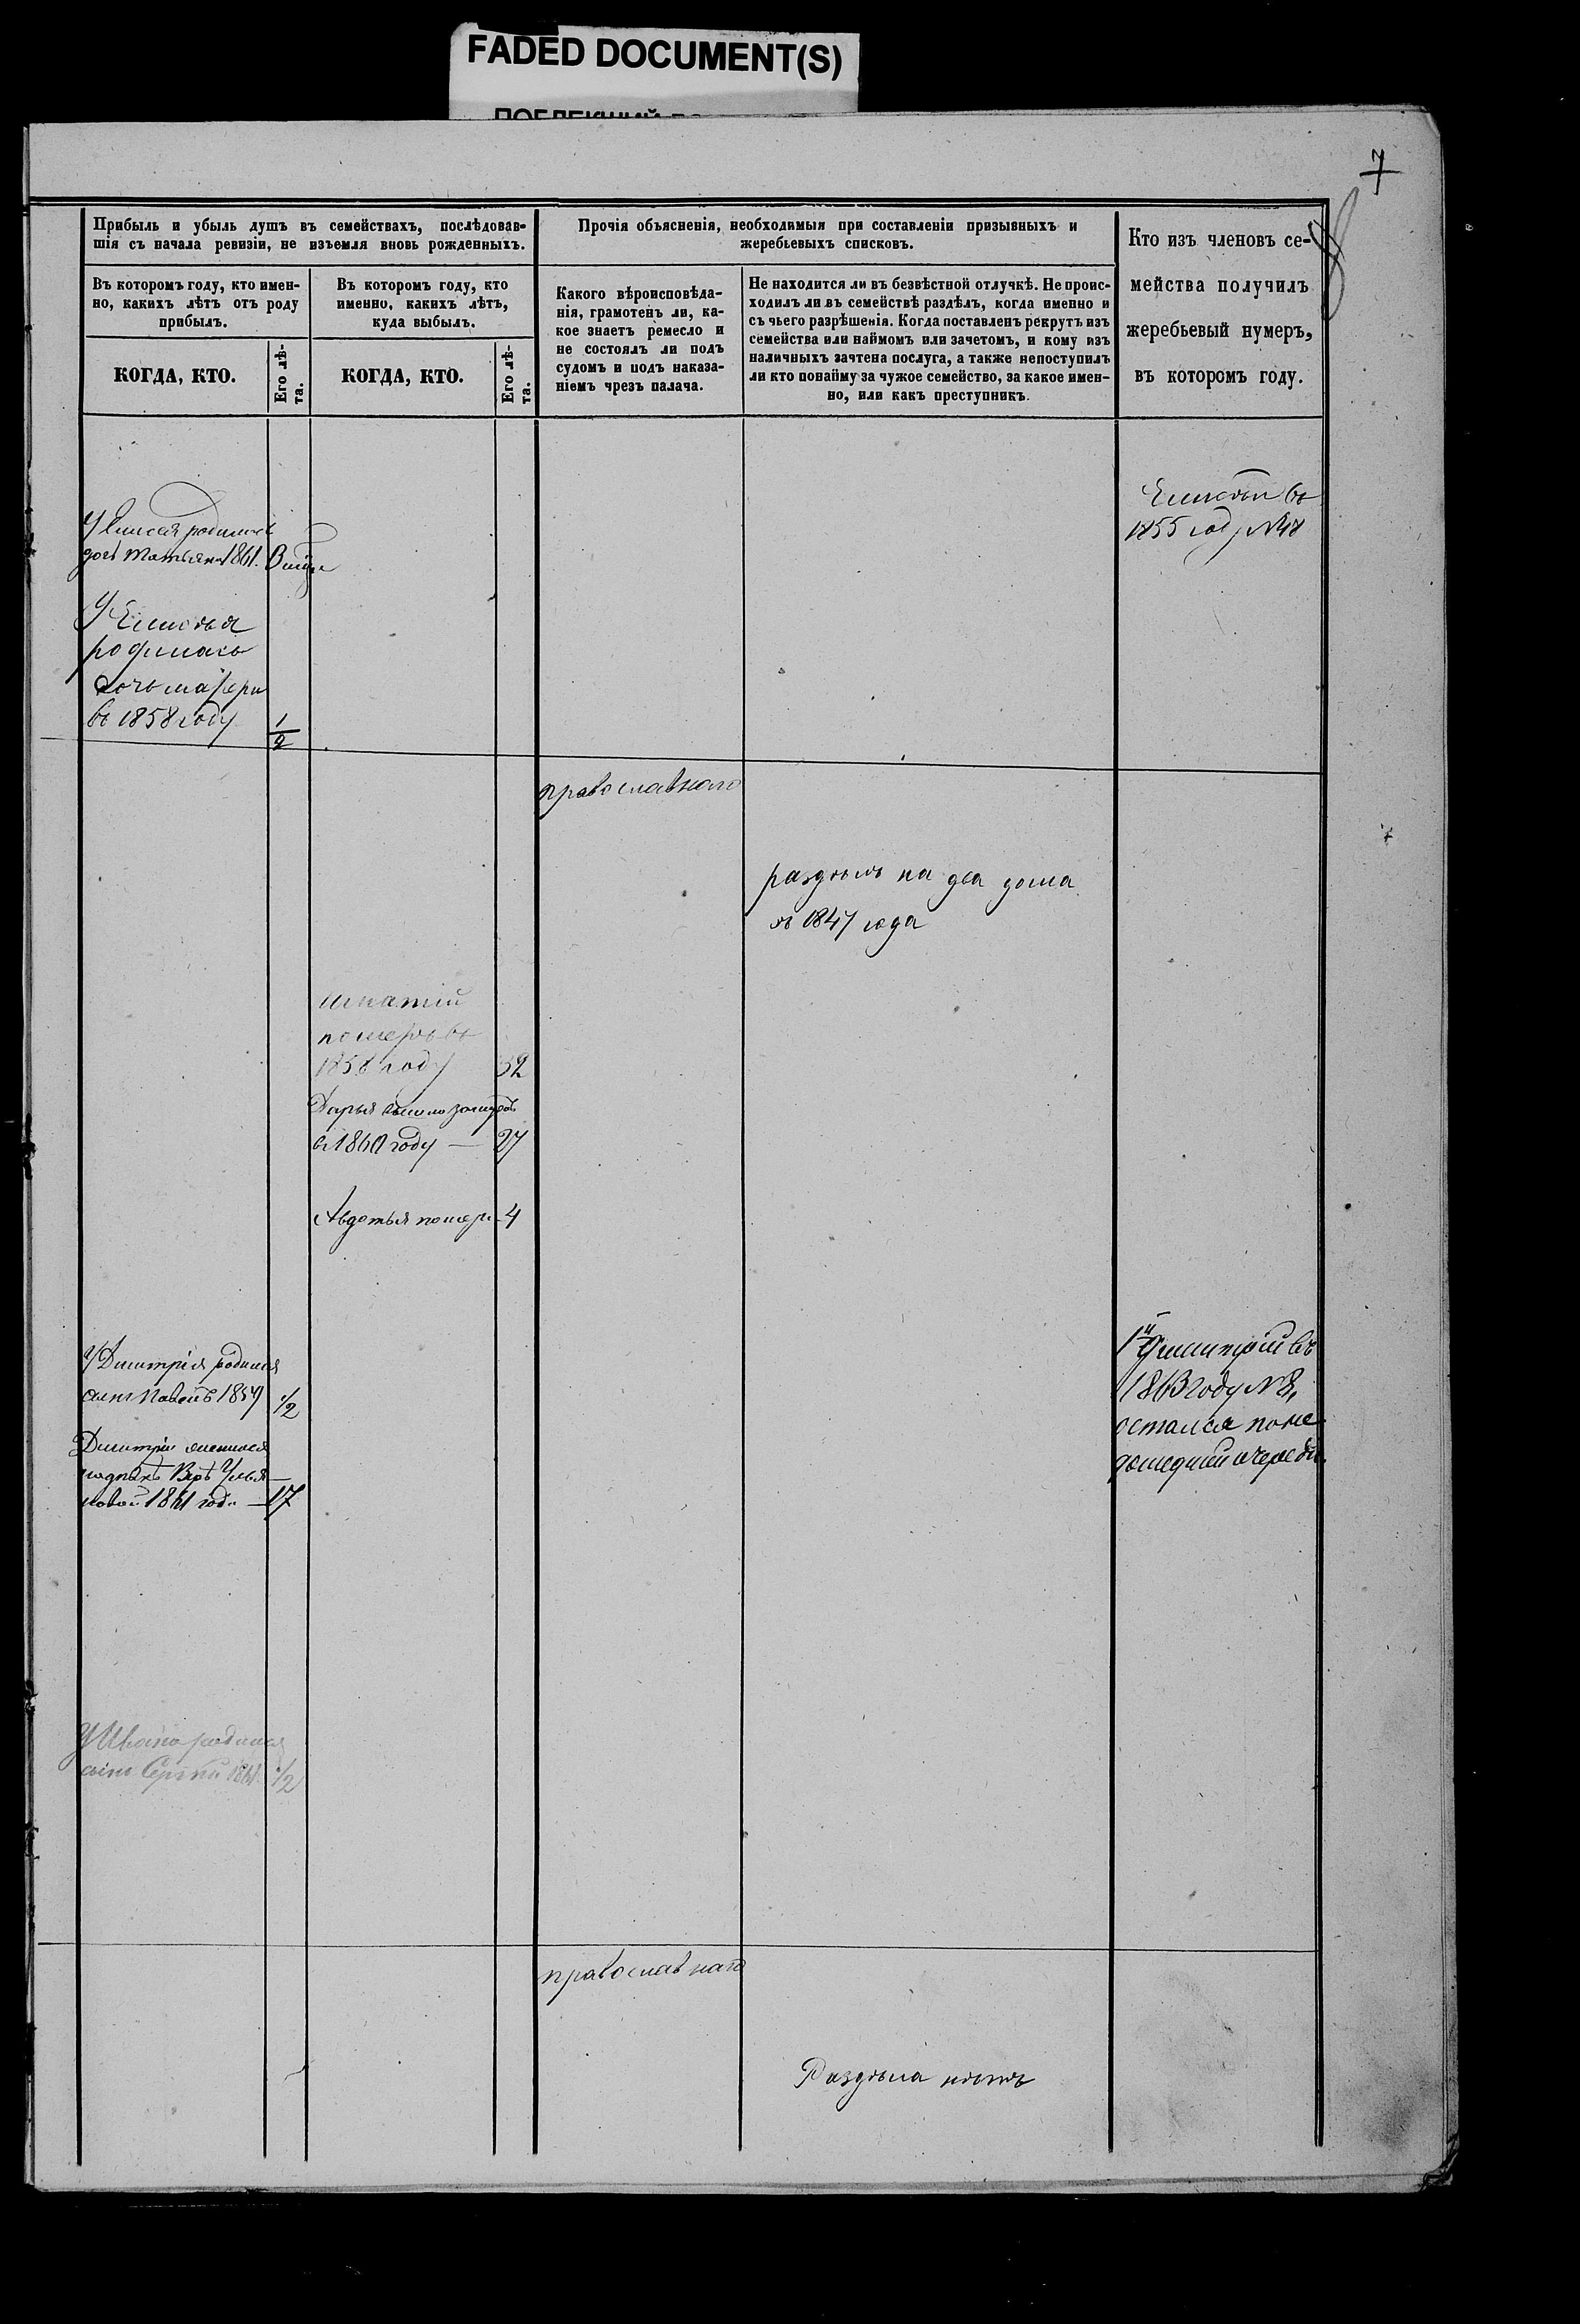 FADED DOCUMENT(S)
7
Прибыль и убыль душъ въ семействахъ, послѣдовав-
шія съ начала ревизіи, не изъемля вновь рожденныхъ.
Прочія объясненія, необходимыя при составленіи призывныхъ и
жеребьевыхъ списковъ.
Кто изъ членовъ се-
мейства получилъ
жеребьевый нумеръ,
въ которомъ году.
Въ которомъ году, кто имен-
но, какихъ лѣтъ отъ роду
прибылъ.
Въ которомъ году, кто
именно, какихъ лѣтъ,
куда выбылъ.
Какого вѣроисповѣда-
нія, грамотенъ ли, ка-
кое знаетъ ремесло и
не состоялъ ли подъ
судомъ и подъ наказа-
ніемъ чрезъ палача.
Не находится ли въ безвѣстной отлучкѣ. Не проис-
ходилъ ли въ семействѣ раздѣлъ, когда именно и
съ чьего разрѣшенія. Когда поставленъ рекрутъ изъ
семейства или наймомъ или зачетомъ, и кому изъ
наличныхъ зачтена послуга, а также непоступилъ
ли кто понайму за чужое семейство, за какое имен-
но, или какъ преступникъ.
КОГДА, КТО.
Его лѣ-
та.
КОГДА, КТО.
Его лѣ-
та.
въ
1855 году №48
У Елисея родилась
дочь Татьяна 1861.
У
родилась
дочь
въ 1858 году 1/2
православнаго
раздѣлъ на два дома
съ 1847 года
померъ въ
1858 году 32
Дарья вышла замужъ
въ 1860 году — 27
Авдотья помер. 4
У Димитрія родился
сынъ 1/2
Димитрій женился
1861 года — 17
Димитрій въ
1863 году №8,
остался поне
дошедшей очереди.
У Ивана родился
сынъ Сергѣй 1861. 1/2
православнаго
Раздѣла нѣтъ